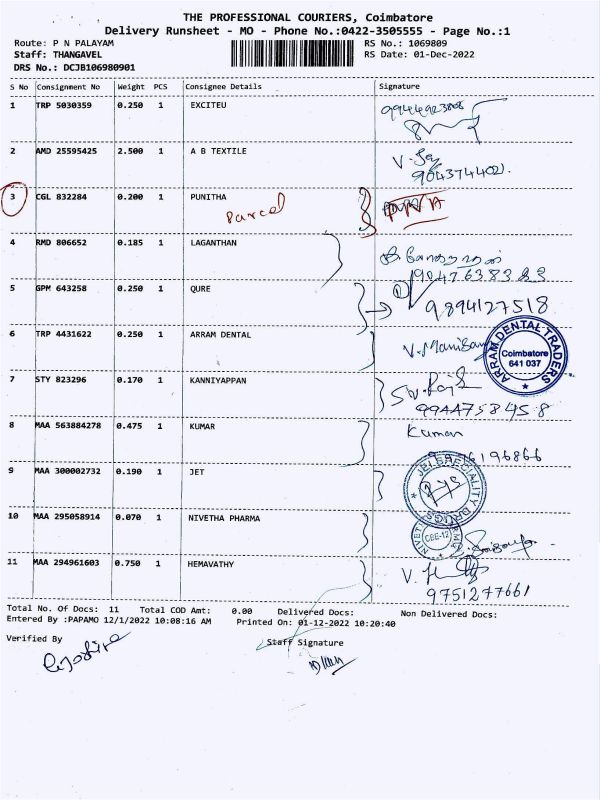 THE PROFESSIONAL COURIERS, Coimbatore
Delivery Runsheet - MO - Phone No.:0422-3505555 - Page No.:1
Route: P N PALAYAM RS No.: 1069809
Staff: THANGAVEL RS Date: 01-Dec-2022
DRS No.: DCJB106980901
S No Consignment No Weight PCS Consignee Details Signature
1 TRP 5030359 0.250 1 EXCITEU
2 AMD 25595425 2.500 1 A B TEXTILE
9043744021.
3 CGL 832284 0.200 1 PUNITHA
Parcel
4 RMD 806652 0.185 1 LAGANTHAN
5 GPM 643258 0.250 1 QURE
9894127518
6 TRP 4431622 0.250 1 ARRAM DENTAL
ARRAM DENTAL TRADERS
Coimbatore
641 037
7 STY 823296 0.170 1 KANNIYAPPAN
9944758458
8 MAA 563884278 0.475 1 KUMAR Kumar
9 MAA 300002732 0.190 1 JET
SPECIALITY DRUGS
10 MAA 295058914 0.070 1 NIVETHA PHARMA
CBE-12
11 MAA 294961603 0.750 1 HEMAVATHY
9751277661
Total No. Of Docs: 11 Total COD Amt: 0.00 Delivered Docs: Non Delivered Docs:
Entered By :PAPAMO 12/1/2022 10:08:16 AM Printed On: 01-12-2022 10:20:40
Verified By Staff Signature